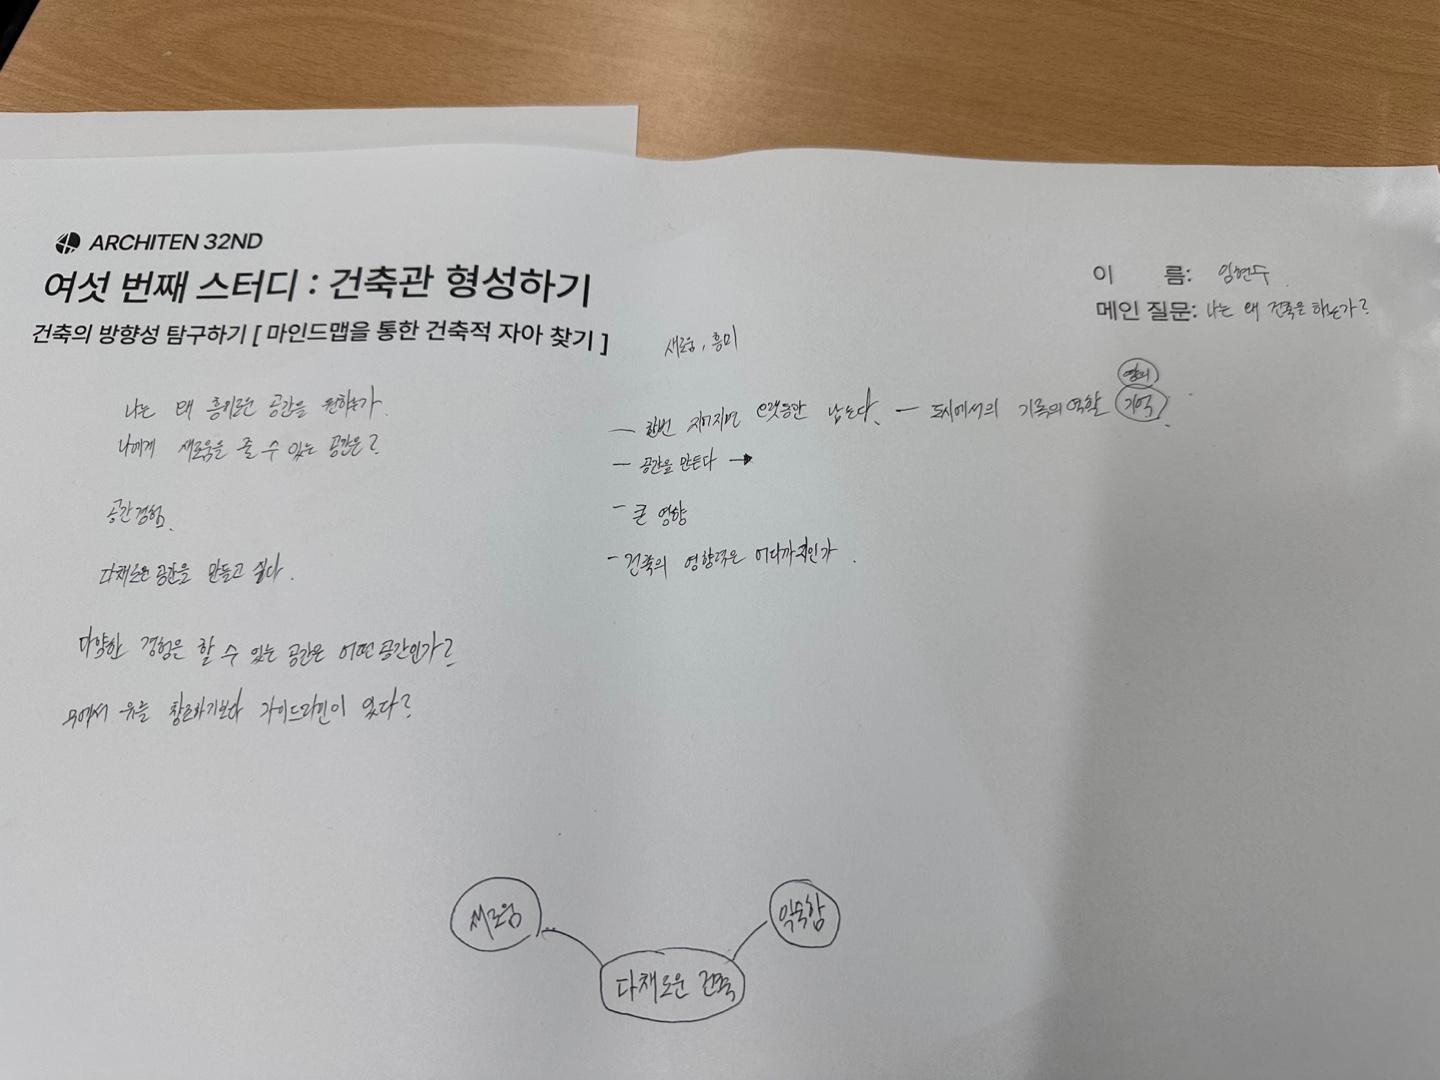 ARCHITEN 32ND
여섯 번째 스터디 : 건축관 형성하기
건축의 방향성 탐구하기 [ 마인드맵을 통한 건축적 자아 찾기 ]
이 름: 임현수
메인 질문: 나는 왜 건축을 하는가?
새로움, 흥미
나는 왜 흥미로운 공간을 원하는가
나에게 새로움을 줄 수 있는 공간은?
공간경험.
다채로운 공간을 만들고 싶다.
다양한 경험은 할 수 있는 공간은 어떤 공간인가?
무에서 유를 창조하기보다 가이드라인이 있다?
— 한번 지어지면 오랫동안 남는다. — 도시에서의 기록의 역할 기억.
— 공간을 만든다 →
- 큰 영향
- 건축의 영향력은 어디까지인가.
새로움
익숙함
다채로운 건축